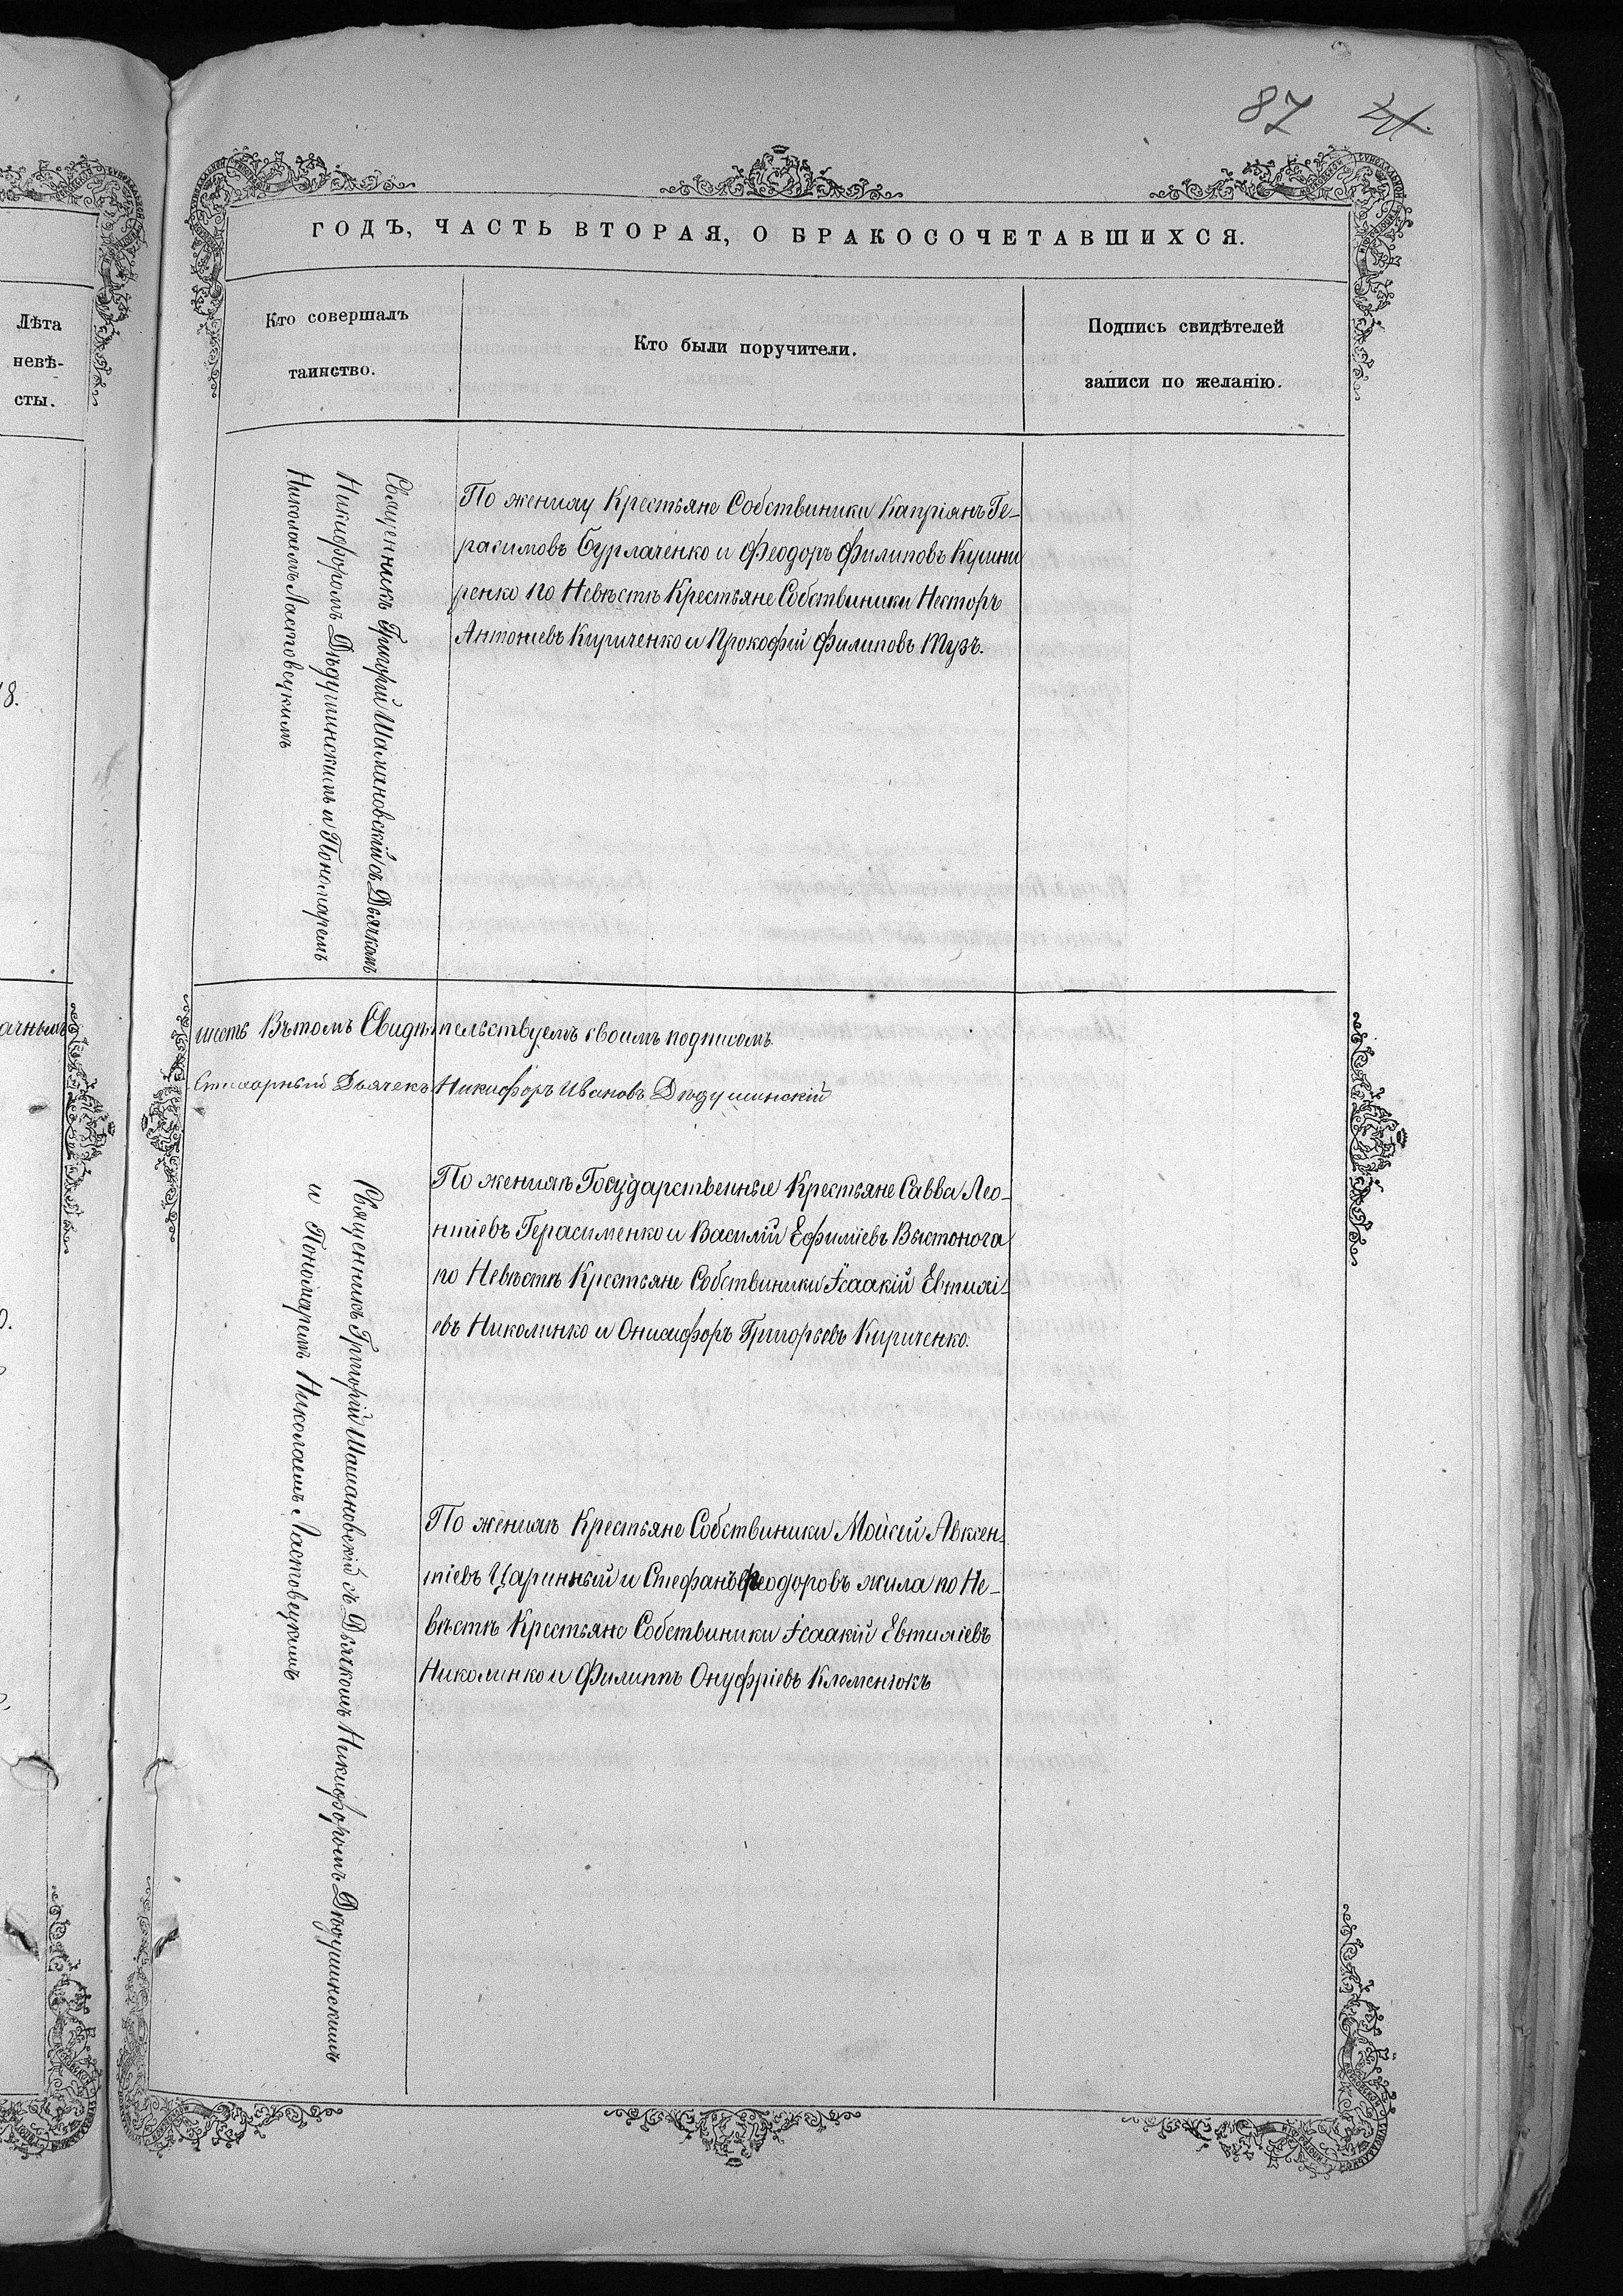 87
ГОДЪ, ЧАСТЬ ВТОРАЯ, О БРАКОСОЧЕТАВШИХСЯ.
Лѣта
невѣ-
сты.
Кто совершалъ
таинство.
Кто были поручители.
Подпись свидѣтелей
записи по желанію.
Священникъ Григорій Шамановскій съ Дьячкомъ
Никифоромъ Дѣдушинскимъ и Пономаремъ
Николаемъ Ластовецкимъ
По жениху Крестьяне Собствиники Капріянъ Ге-
расимовъ Бурлаченко и Феодоръ Филиповъ
ренко по Невѣстѣ Крестьяне Собствиники Несторъ
Антоніевъ Кириченко и Прокофій Филиповъ Тузъ.
8.
шесть Вътомъ Свидѣтельствуемъ своимъ подписомъ.
Стихарный Дьячекъ Никифоръ Ивановъ Дѣдушинскій
Священникъ Григорій Шамановскій съ Дьячкомъ Никифоромъ Дѣдушинскимъ
и Пономаремъ Николаемъ Ластовецкимъ
По женихѣ Государственные Крестьяне Савва Лео-
нтіевъ Герасименко и Василій Ефиміевъ Выстонога
по Невѣстѣ Крестьяне Собствиники Ісаакій Евтихі-
евъ Николинко и Онисифоръ Григорьевъ Кириченко.
По женихѣ Крестьяне Собствиники Мойсій Авксен-
тіевъ Царинный и Стефанъ Феодоровъ жила по Не-
вѣстѣ Крестьяне Собствиники Ісаакій Евтихіевъ
Николинко и Филиппъ Онуфріевъ Клеменюкъ